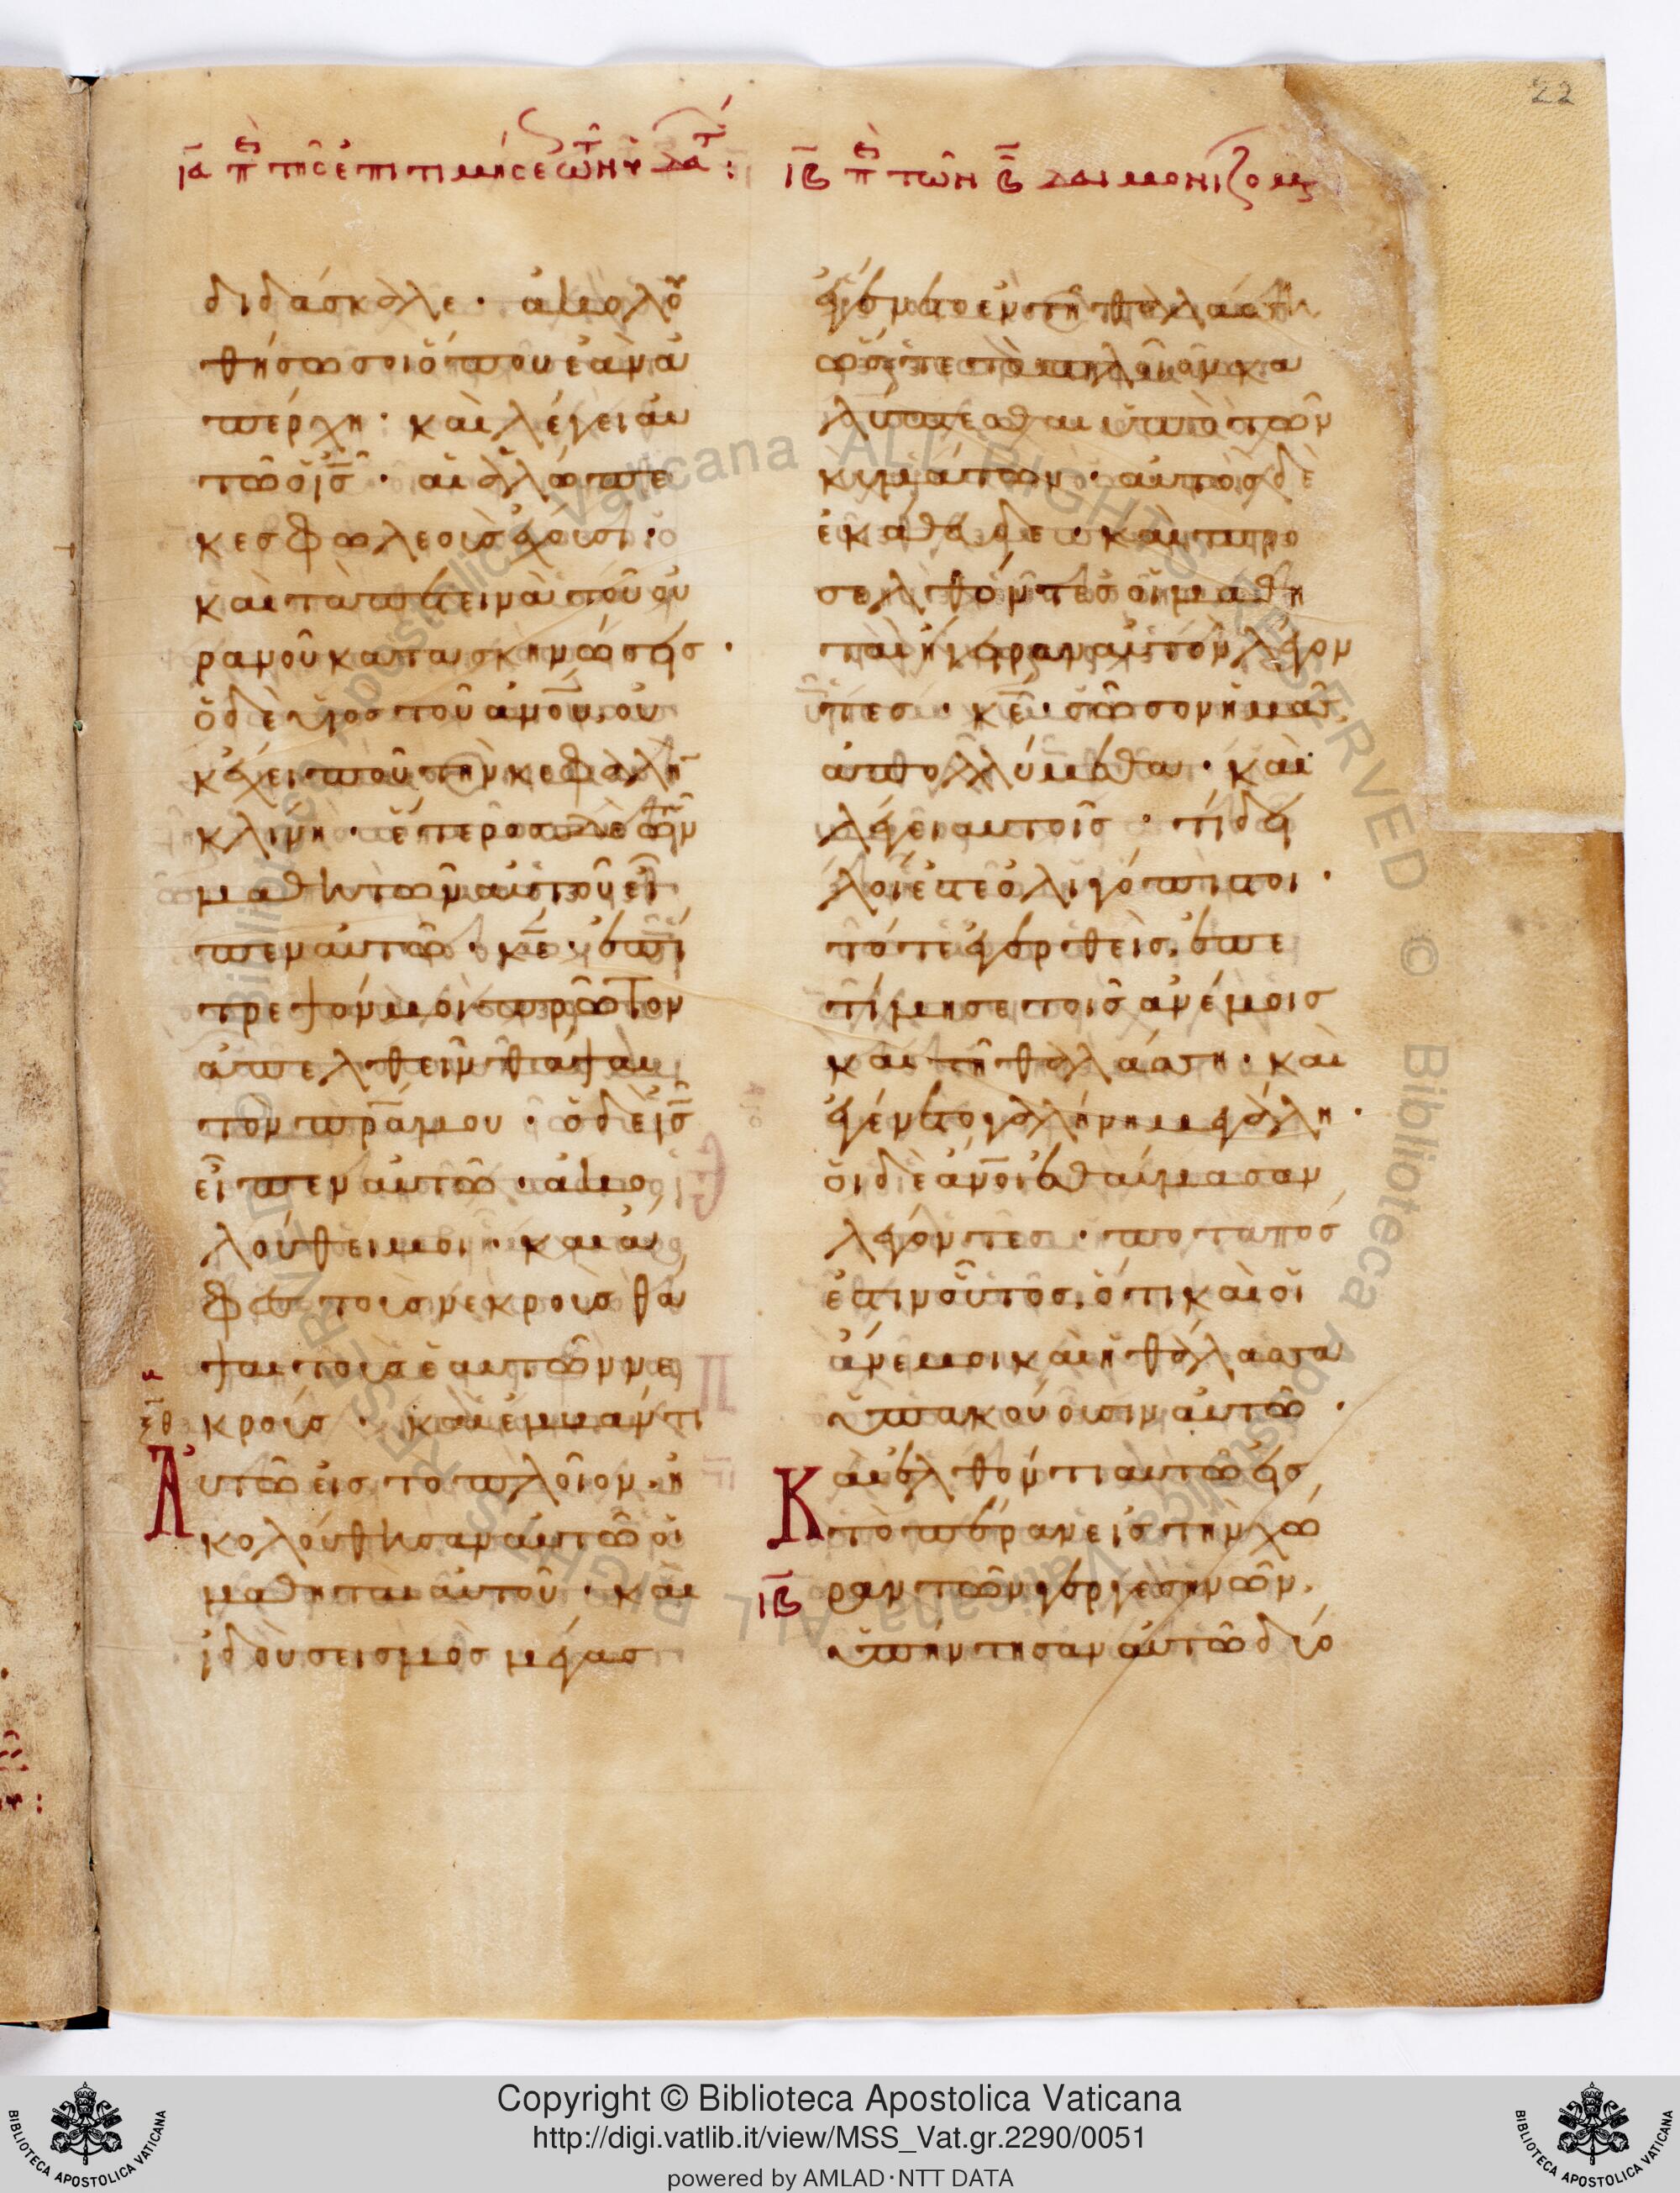 22
ια πε τῆς ἐπιτιμήσεως τῶν ὑδάτ :
ιβ πε τῶν β δαιμονιζομ
διδάσκαλε · ἀκολου
θήσω σοι ὅπου ἐὰν ἀ
πέρχη · καὶ λέγει αυ
τῶ ὁ ις · αἱ ἀλώπε
κες φωλεοὺς ἔχουσι ·
καὶ τὰ πετεινὰ τοῦ ου
ρανοῦ κατασκηνώσεις ·
ὁ δὲ υἱος τοῦ ανου, οὐ
κ ἔχει ποῦ τὴν κεφαλὴ
κλίνη · ἕτερος δὲ τῶν
μαθητῶν αὐτοῦ εἶ
πεν αὐτῶ · κε · ἐπί
τρεψόν μοι πρῶτον
ἀπελθεῖν θάψαι
τὸν πρα μου · ὁ δὲ ις
εἶπεν αυτῶ · ἀκο
λούθει μοι · καὶ ἄ
φες τοὺς νεκροὺς θά
ψαι τοὺς ἑαυτῶν νε
κρούς · καὶ ἐμβάντι
Αὐτῶ εἰς το πλοῖον · ἠ
κολούθησαν αυτῶ οἱ
μαθηται αὐτοῦ · καὶ
ἰδοὺ σεισμὸς μέγας
ἐγένετο ἐν τῆ θαλάσση
ὥστε τὸ πλοῖον κα
λύπτεσθαι ὑπὸ τῶν
κυμάτων · αὐτὸς δὲ
ἐκάθευδε · καὶ προ
σελθόντες οἱ μαθη
ταὶ ἤγειραν αὐτὸν λέγον
τες · κε · σῶσον ἡμᾶς
ἀπολλύμεθα · καὶ
λέγει αυτοῖς · τί δει
λοί ἐστε ὀλιγόπιστοι ·
τότε ἐγερθεὶς, ἐπε
τίμησε τοῖς ἀνέμοις
καὶ τῆ θαλάσση · καὶ
ἐγένετο γαλήνη μεγάλη ·
οἱ δὲ ανοι ἐθαύμασαν
λέγοντες · ποταπός
ἐστιν οὗτος, ὅτι καὶ οἱ
ἄνεμοι καὶ ἡ θάλασσα
ὑπακούουσιν αὐτῶ ·
Καὶ ἐλθόντι αυτῶ εἰς
τὸ πέραν εἰς τὴν χώ
ιβ ραν τῶν γεργεσηνῶν,
ὑπήντησαν αὐτῶ δύο
Copyright © Biblioteca Apostolica Vaticana
http://digi.vatlib.it/view/MSS_Vat.gr.2290/0051
powered by AMLAD·NTT DATA
BIBLIOTECA APOSTOLICA VATICANA
BIBLIOTECA APOSTOLICA VATICANA